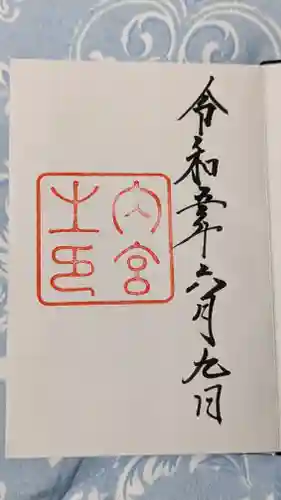 令和五年六月九日
内宮
之印